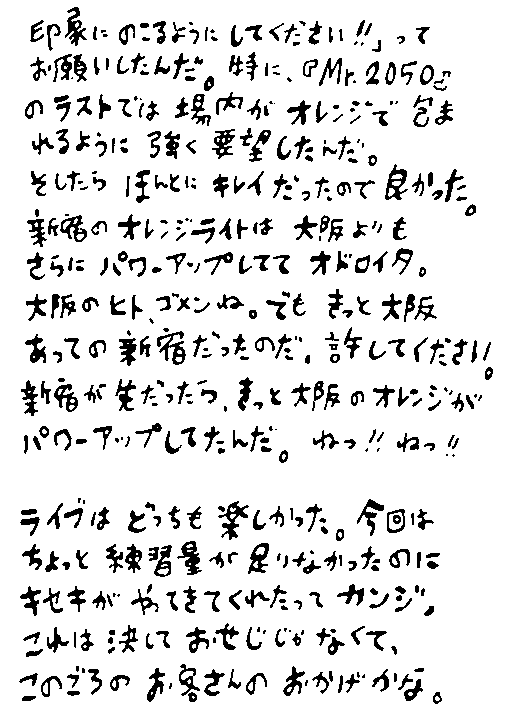 印象にのこるようにしてください!!」って
お願いしたんだ。特に、『Mr.2050』
のラストでは場内がオレンジで包ま
れるように強く要望したんだ。
そしたらほんとにキレイだったので良かった。
新宿のオレンジライトは大阪よりも
さらにパワーアップしててオドロイタ。
大阪のヒト、ゴメンね。でもきっと大阪
あっての新宿だったのだ。許してください。
新宿が先だったら、きっと大阪のオレンジが
パワーアップしてたんだ。ねっ!!ねっ!!
ライブはどっちも楽しかった。今回は
ちょっと練習量が足りなかったのに
キセキがやってきてくれたってカンジ。
これは決しておせじじゃなくて、
このごろのお客さんのおかげかな。